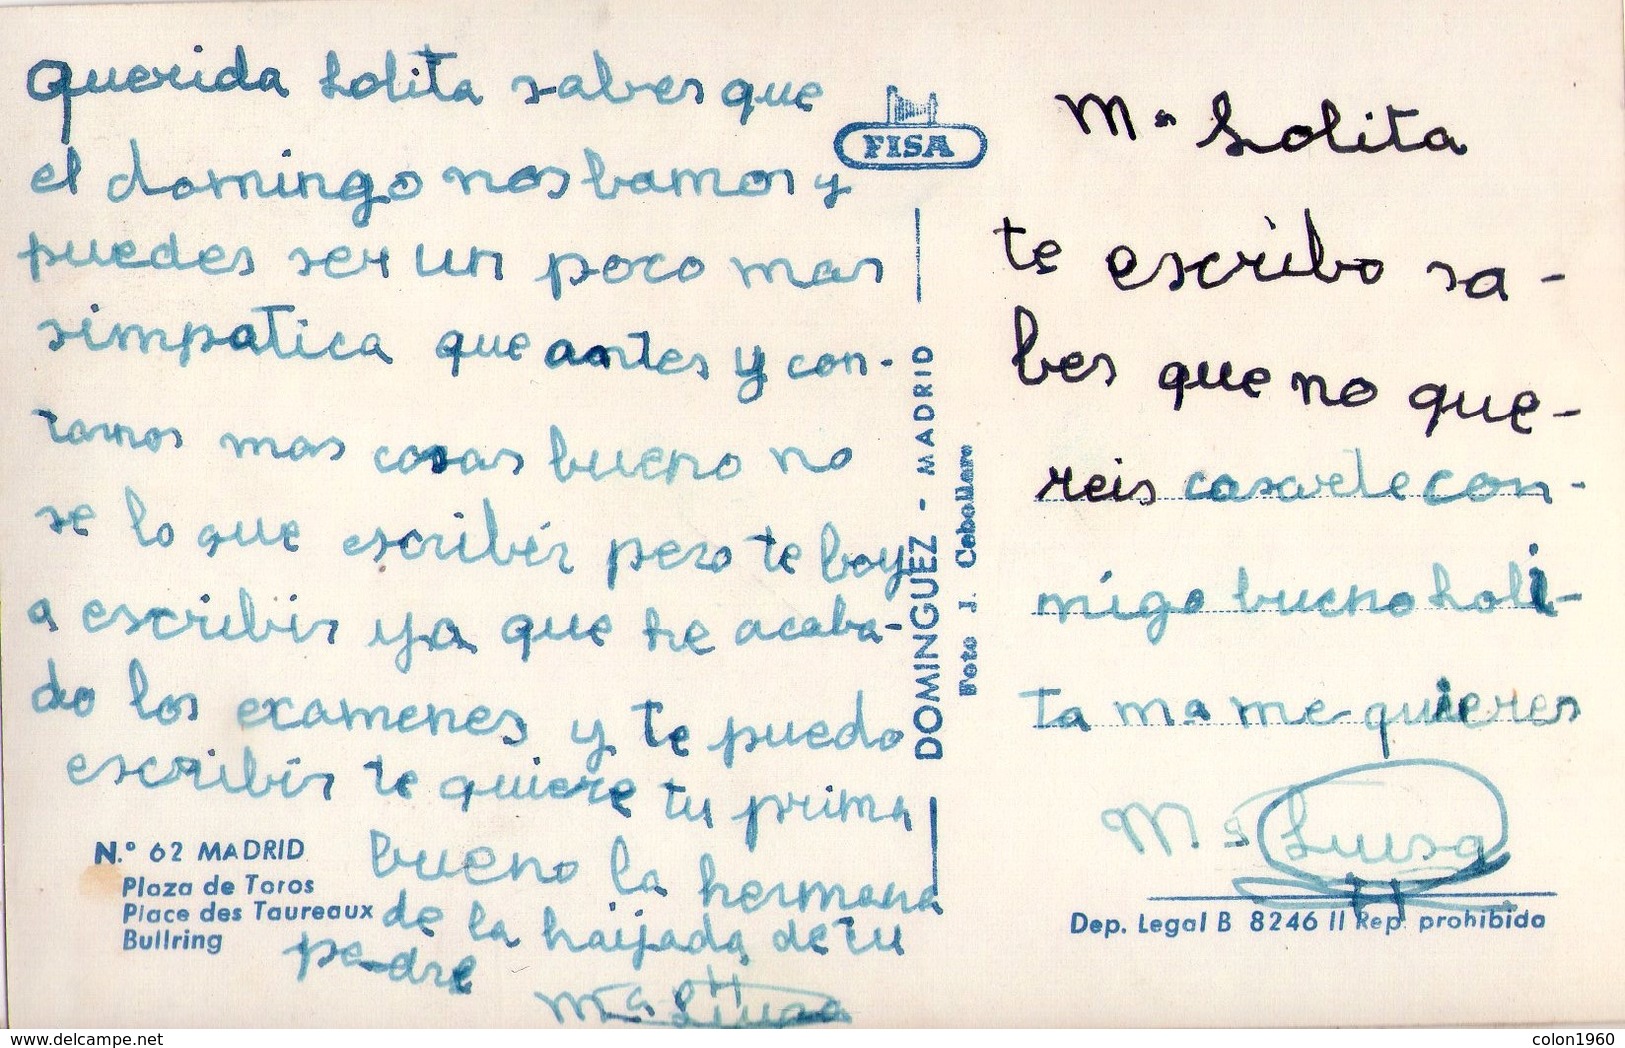 Querida Lolita sabes que
el domingo nos bamos y
puedes ser un poco mas
simpatica que antes y con-
tamos mas cosas bueno no
se lo que escribir pero te boy
a escribir ya que he acaba-
do los examenes y te puedo
escribir te quiere tu prima
bueno la hermana
de la haijada de tu
padre
Mª Luisa
N.º 62 MADRID
Plaza de Toros
Place des Taureaux
Bullring
FISA
DOMINGUEZ - MADRID
Foto J. Cebollero
Mª Lolita
te escribo sa-
bes que no que-
reis casarte con-
migo bueno Loli-
ta Mª me quieres
Mª Luisa
Dep. Legal B 8246 II Rep. prohibida
https://www.delcampe.net
colon1960